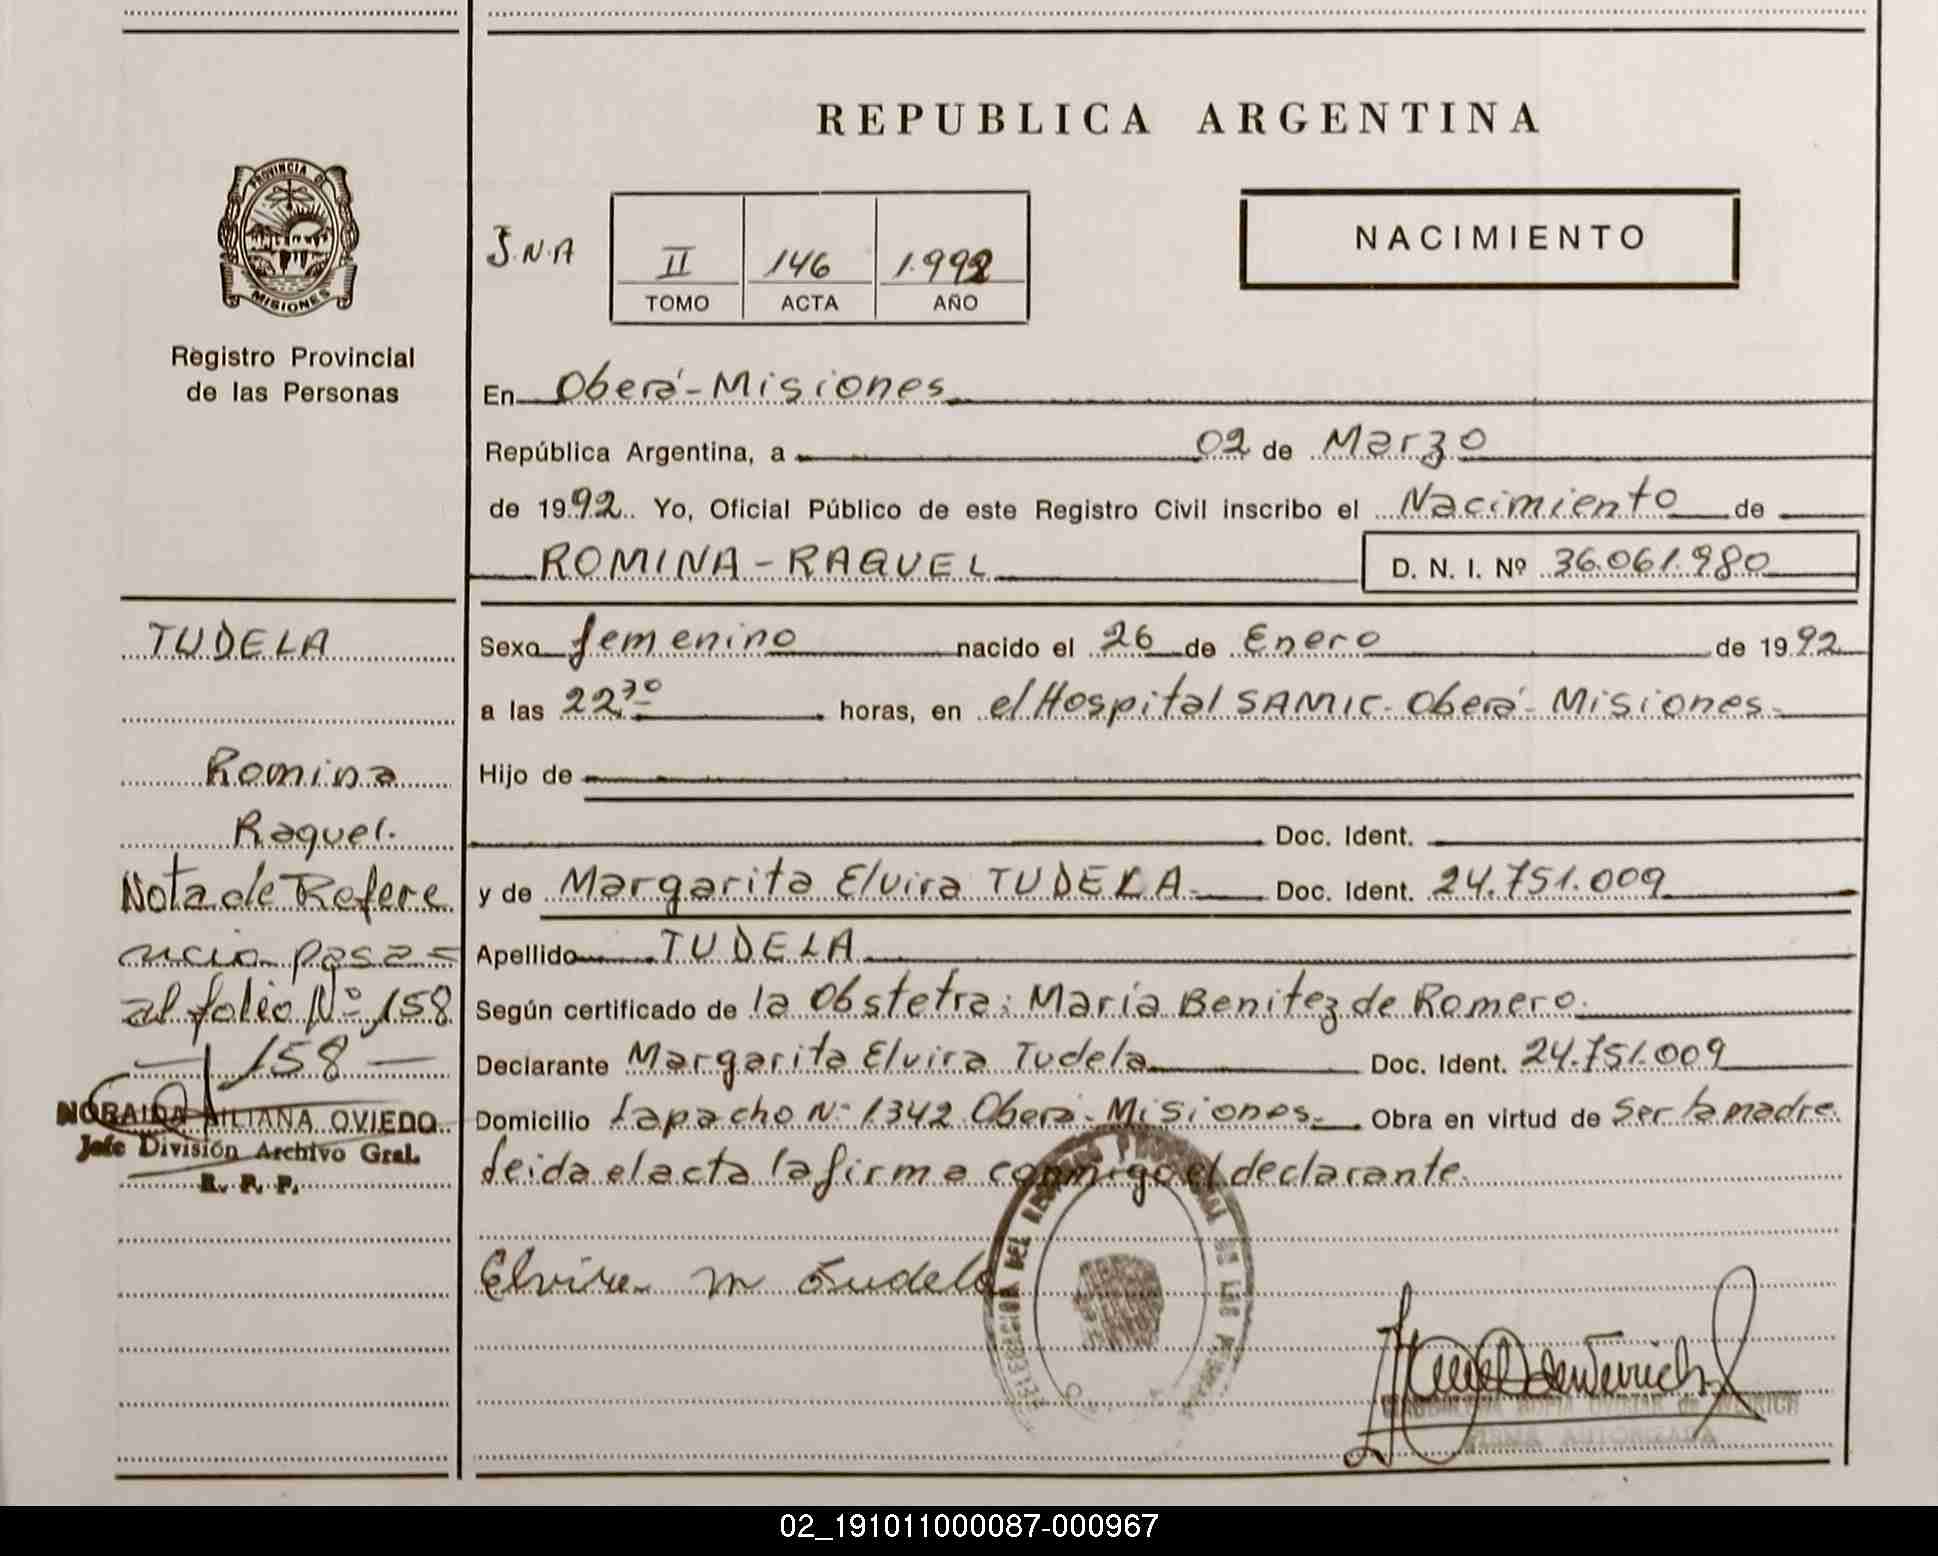 REPUBLICA ARGENTINA
PROVINCIA DE
MISIONES
Registro Provincial
de las Personas
J.N.A
II 146 1.992
TOMO ACTA AÑO
NACIMIENTO
En Oberá-Misiones
República Argentina, a 02 de Marzo
de 1992 Yo, Oficial Público de este Registro Civil inscribo el Nacimiento de
ROMINA-RAQUEL
D. N. I. Nº 36.061.980
Sexo femenino nacido el 26 de Enero de 1992
a las 22,30 horas, en el Hospital SAMIC- Oberá- Misiones-
Hijo de
Doc. Ident.
y de Margarita Elvira TUDELA- Doc. Ident. 24.751.009
Apellido TUDELA
Según certificado de la Obstetra: María Benitez de Romero.
Declarante Margarita Elvira Tudela Doc. Ident. 24.751.009
Domicilio Lapacho Nº 1342 Oberá- Misiones- Obra en virtud de ser la madre.
Leida el acta la firma conmigo el declarante.
Elvira M Tudela
TUDELA
Romina
Raquel.
Nota de Refere
ncia pasa=
al folio Nº 158
— 158 —
NORAIDA LILIANA OVIEDO
Jefe División Archivo Gral.
R. P. P.
02_191011000087-000967